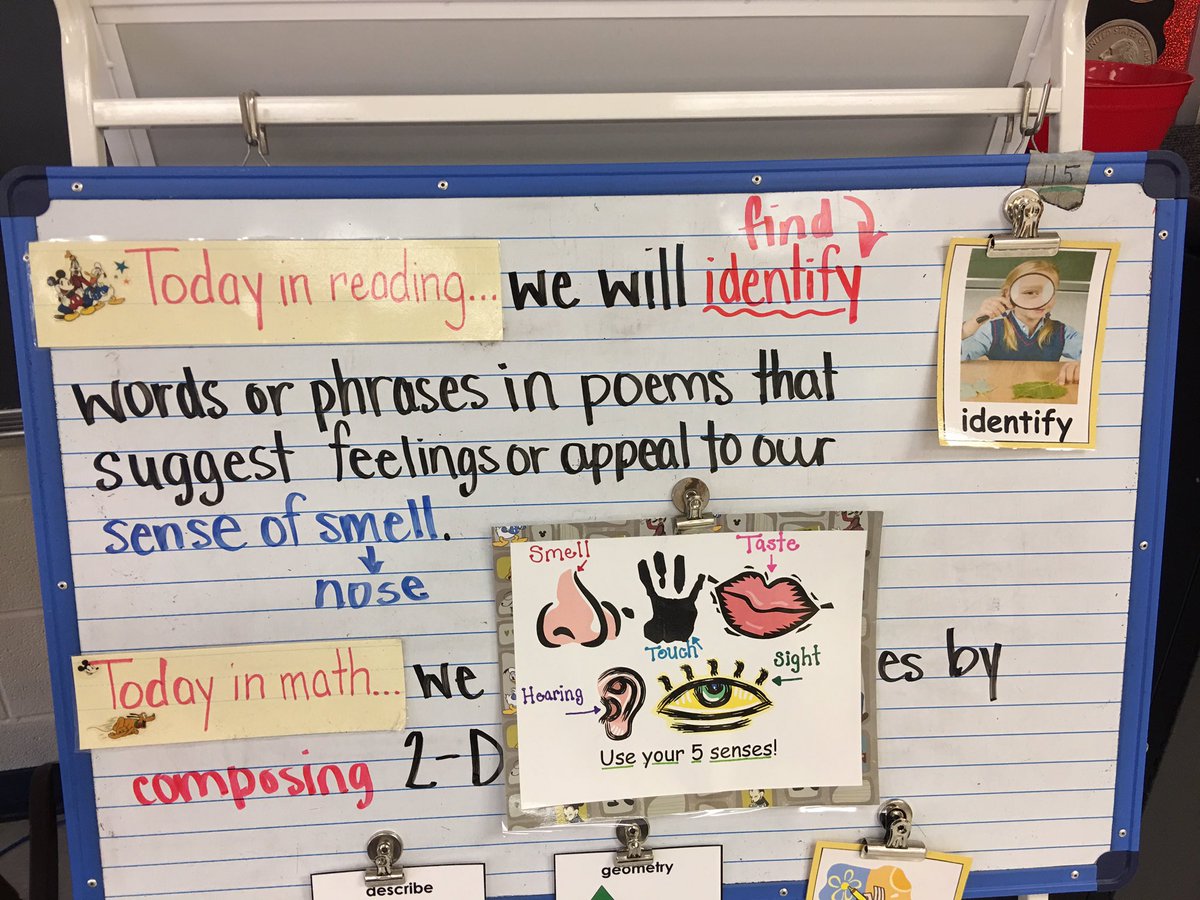 115
find
Today in reading... we will identify
words or phrases in poems that
suggest feelings or appeal to our
sense of smell.
nose
identify
Smell
Taste
Touch
Hearing
Sight
Use your 5 senses!
Today in math... we es by
composing 2-D
describe
geometry